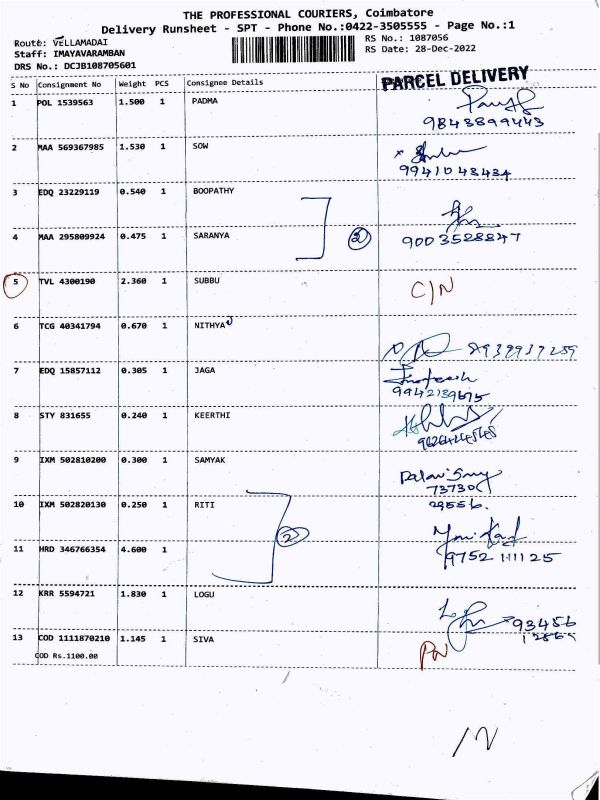 THE PROFESSIONAL COURIERS, Coimbatore
Delivery Runsheet - SPT - Phone No.:0422-3505555 - Page No.:1
Route: VELLAMADAI
Staff: IMAYAVARAMBAN
DRS No.: DCJB108705601
RS No.: 1087056
RS Date: 28-Dec-2022
S No Consignment No Weight PCS Consignee Details PARCEL DELIVERY
1 POL 1539563 1.500 1 PADMA
9843899443
2 MAA 569367985 1.530 1 SOW
9941048434
3 EDQ 23229119 0.540 1 BOOPATHY
4 MAA 295809924 0.475 1 SARANYA 2 9003528847
5 TVL 4300190 2.360 1 SUBBU C/N
6 TCG 40341794 0.670 1 NITHYA
8939937259
7 EDQ 15857112 0.305 1 JAGA
9942189675
8 STY 831655 0.240 1 KEERTHI
9 IXM 502810200 0.300 1 SAMYAK
73730
10 IXM 502820130 0.250 1 RITI 29556.
2
11 HRD 346766354 4.600 1 9752 111125
12 KRR 5594721 1.830 1 LOGU
93456
13 COD 1111870210 1.145 1 SIVA
COD Rs.1100.00